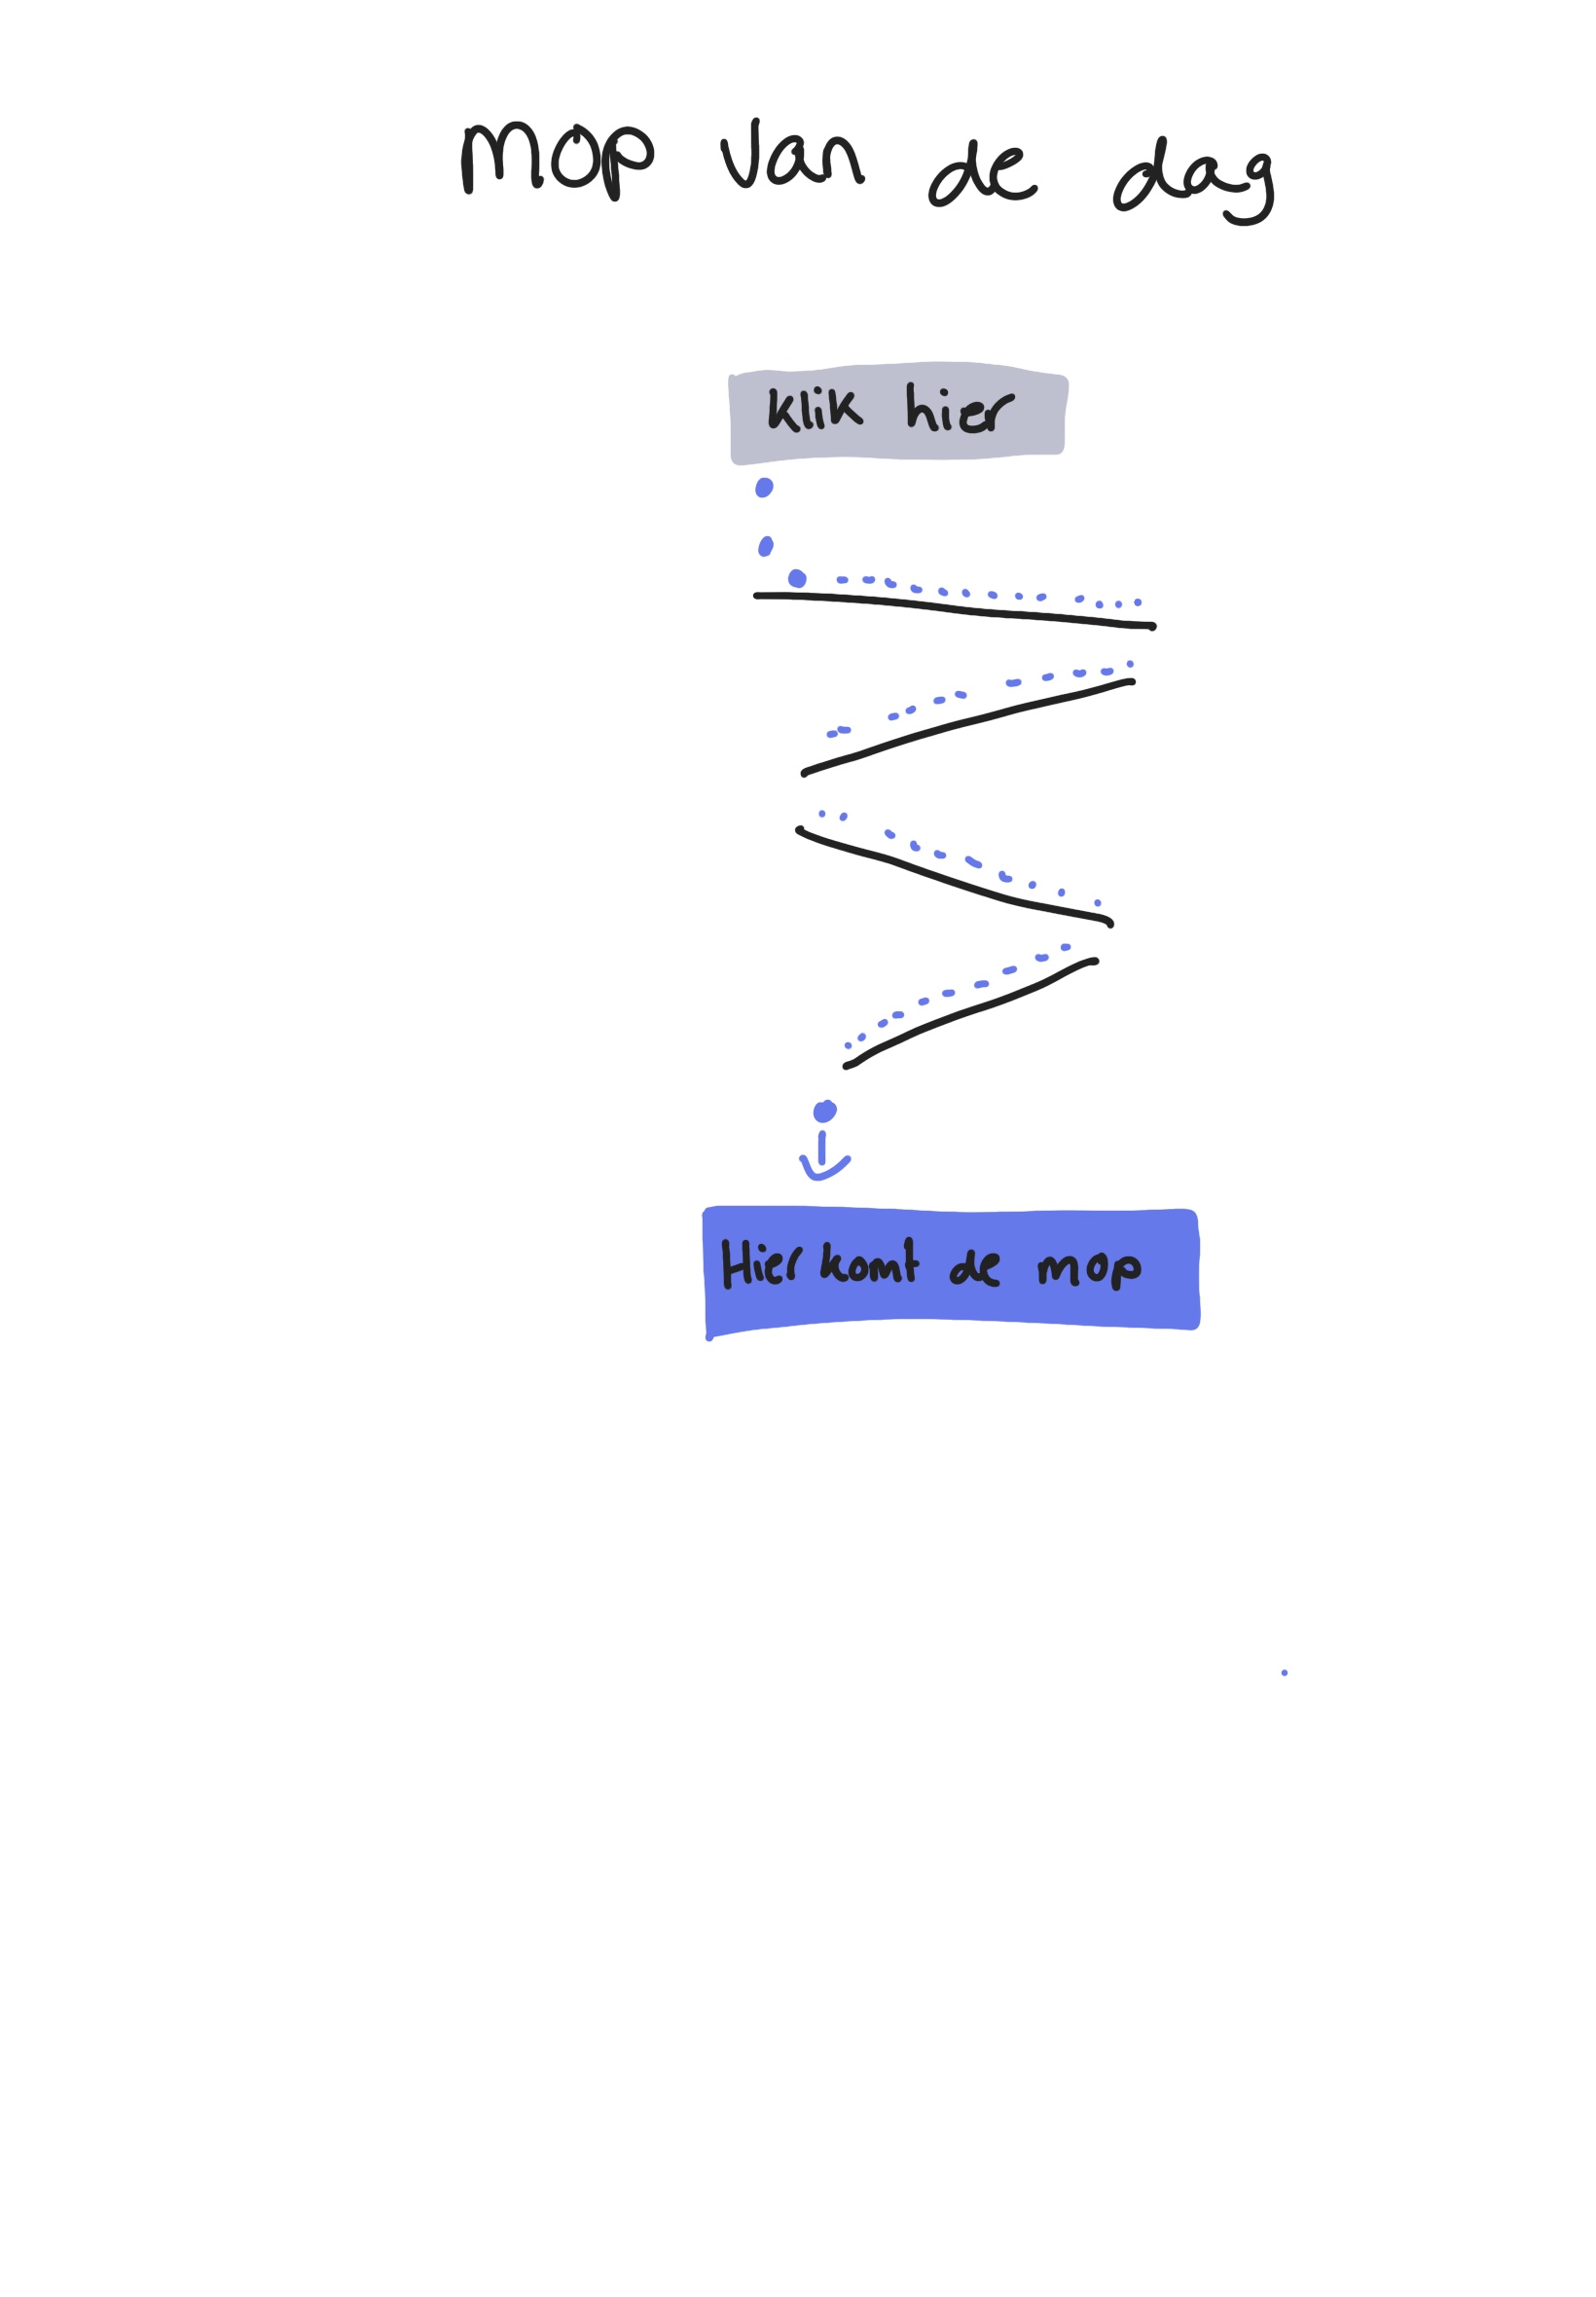 Mop van de dag
klik hier
Hier komt de mop